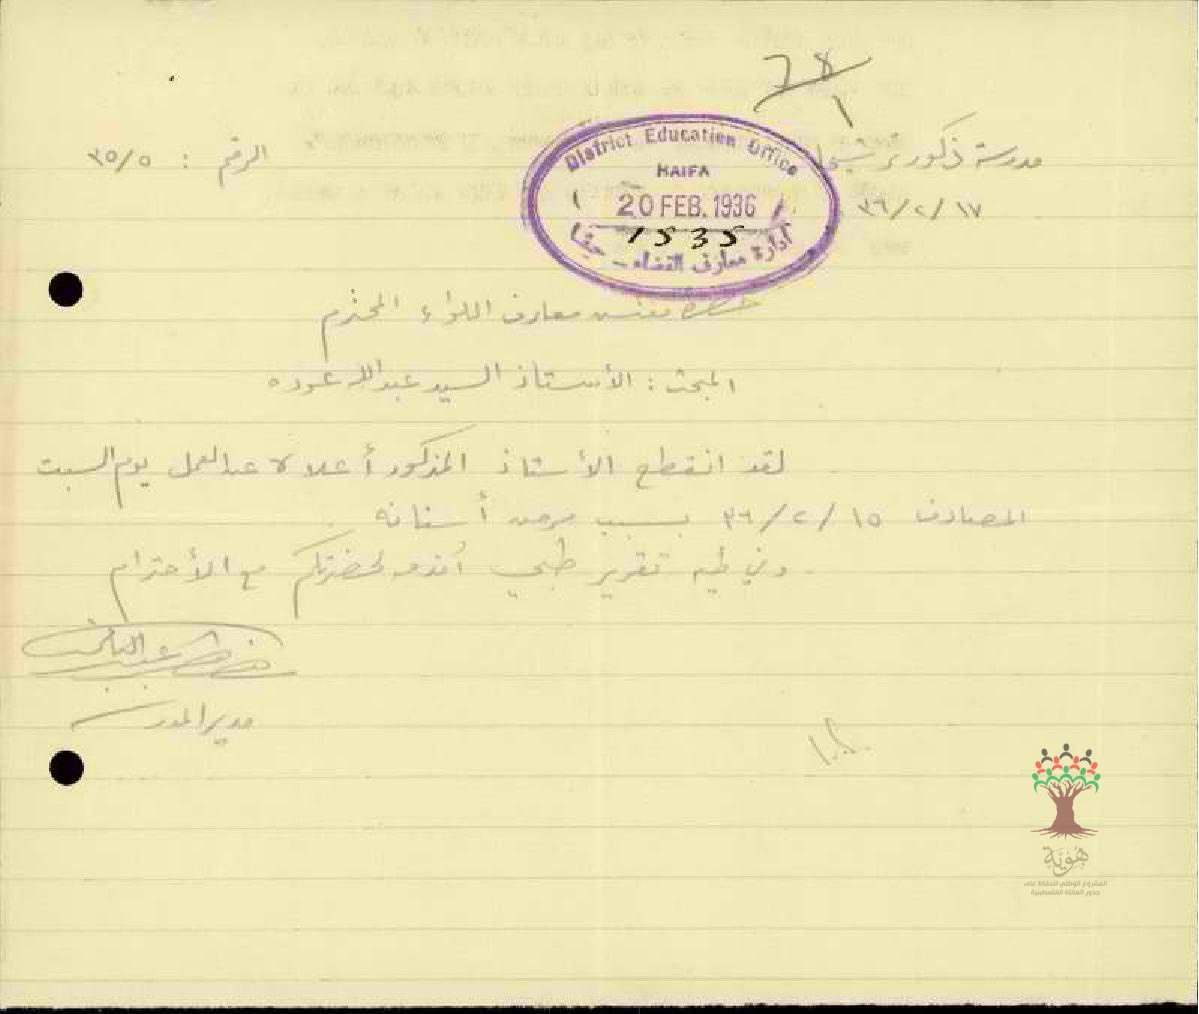 78
1
مدرسة ذكور برسيحا
الرقم : ٣٥/٥
١٧/٢/٣٦
District Education Office
HAIFA
20 FEB. 1936
1535
ادارة معارف القضاء - حيفا
حضرة مفتش معارف اللواء المحترم
المبحث : الأستاذ السيد عبدالله عوده
لقد انقطع الأستاذ المذكور أعلاه عن العمل يوم السبت
المصادف ١٥/٢/٣٦ بسبب مرض أسنانه
وفي طيه تقرير طبي أقدمه لحضرتكم مع الأحترام
مدير المدرسة
هُوِيَّة
المشروع الوطني للحفاظ على
جذور العائلة الفلسطينية